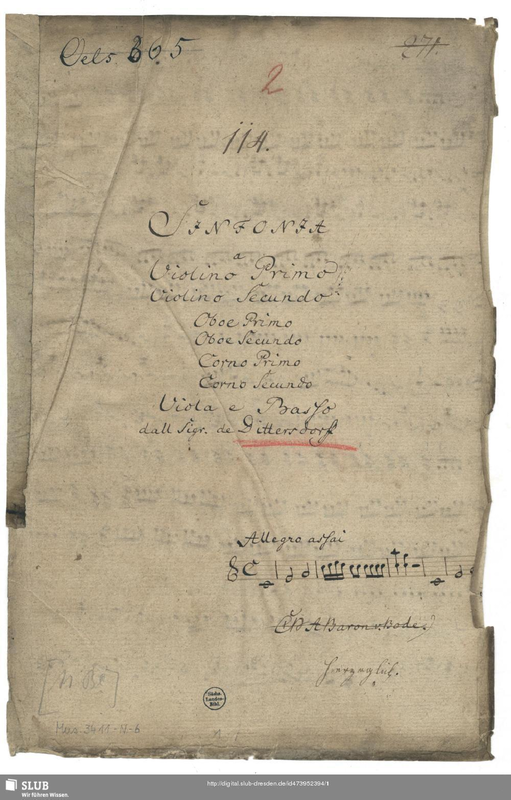 Oels. 365
271.
2
114.
SINFONIA
a
Violino Primo
Violino Secundo
Oboe Primo
Oboe Secundo
Corno Primo
Corno Secundo
Viola e Basso
dall Sigr. de Dittersdorf
Allegro assai
A Baron v. Bode
Mus. 3411-N-6
Sächs.
Landes-
Bibl.
SLUB
Wir führen Wissen.
http://digital.slub-dresden.de/id473952394/1